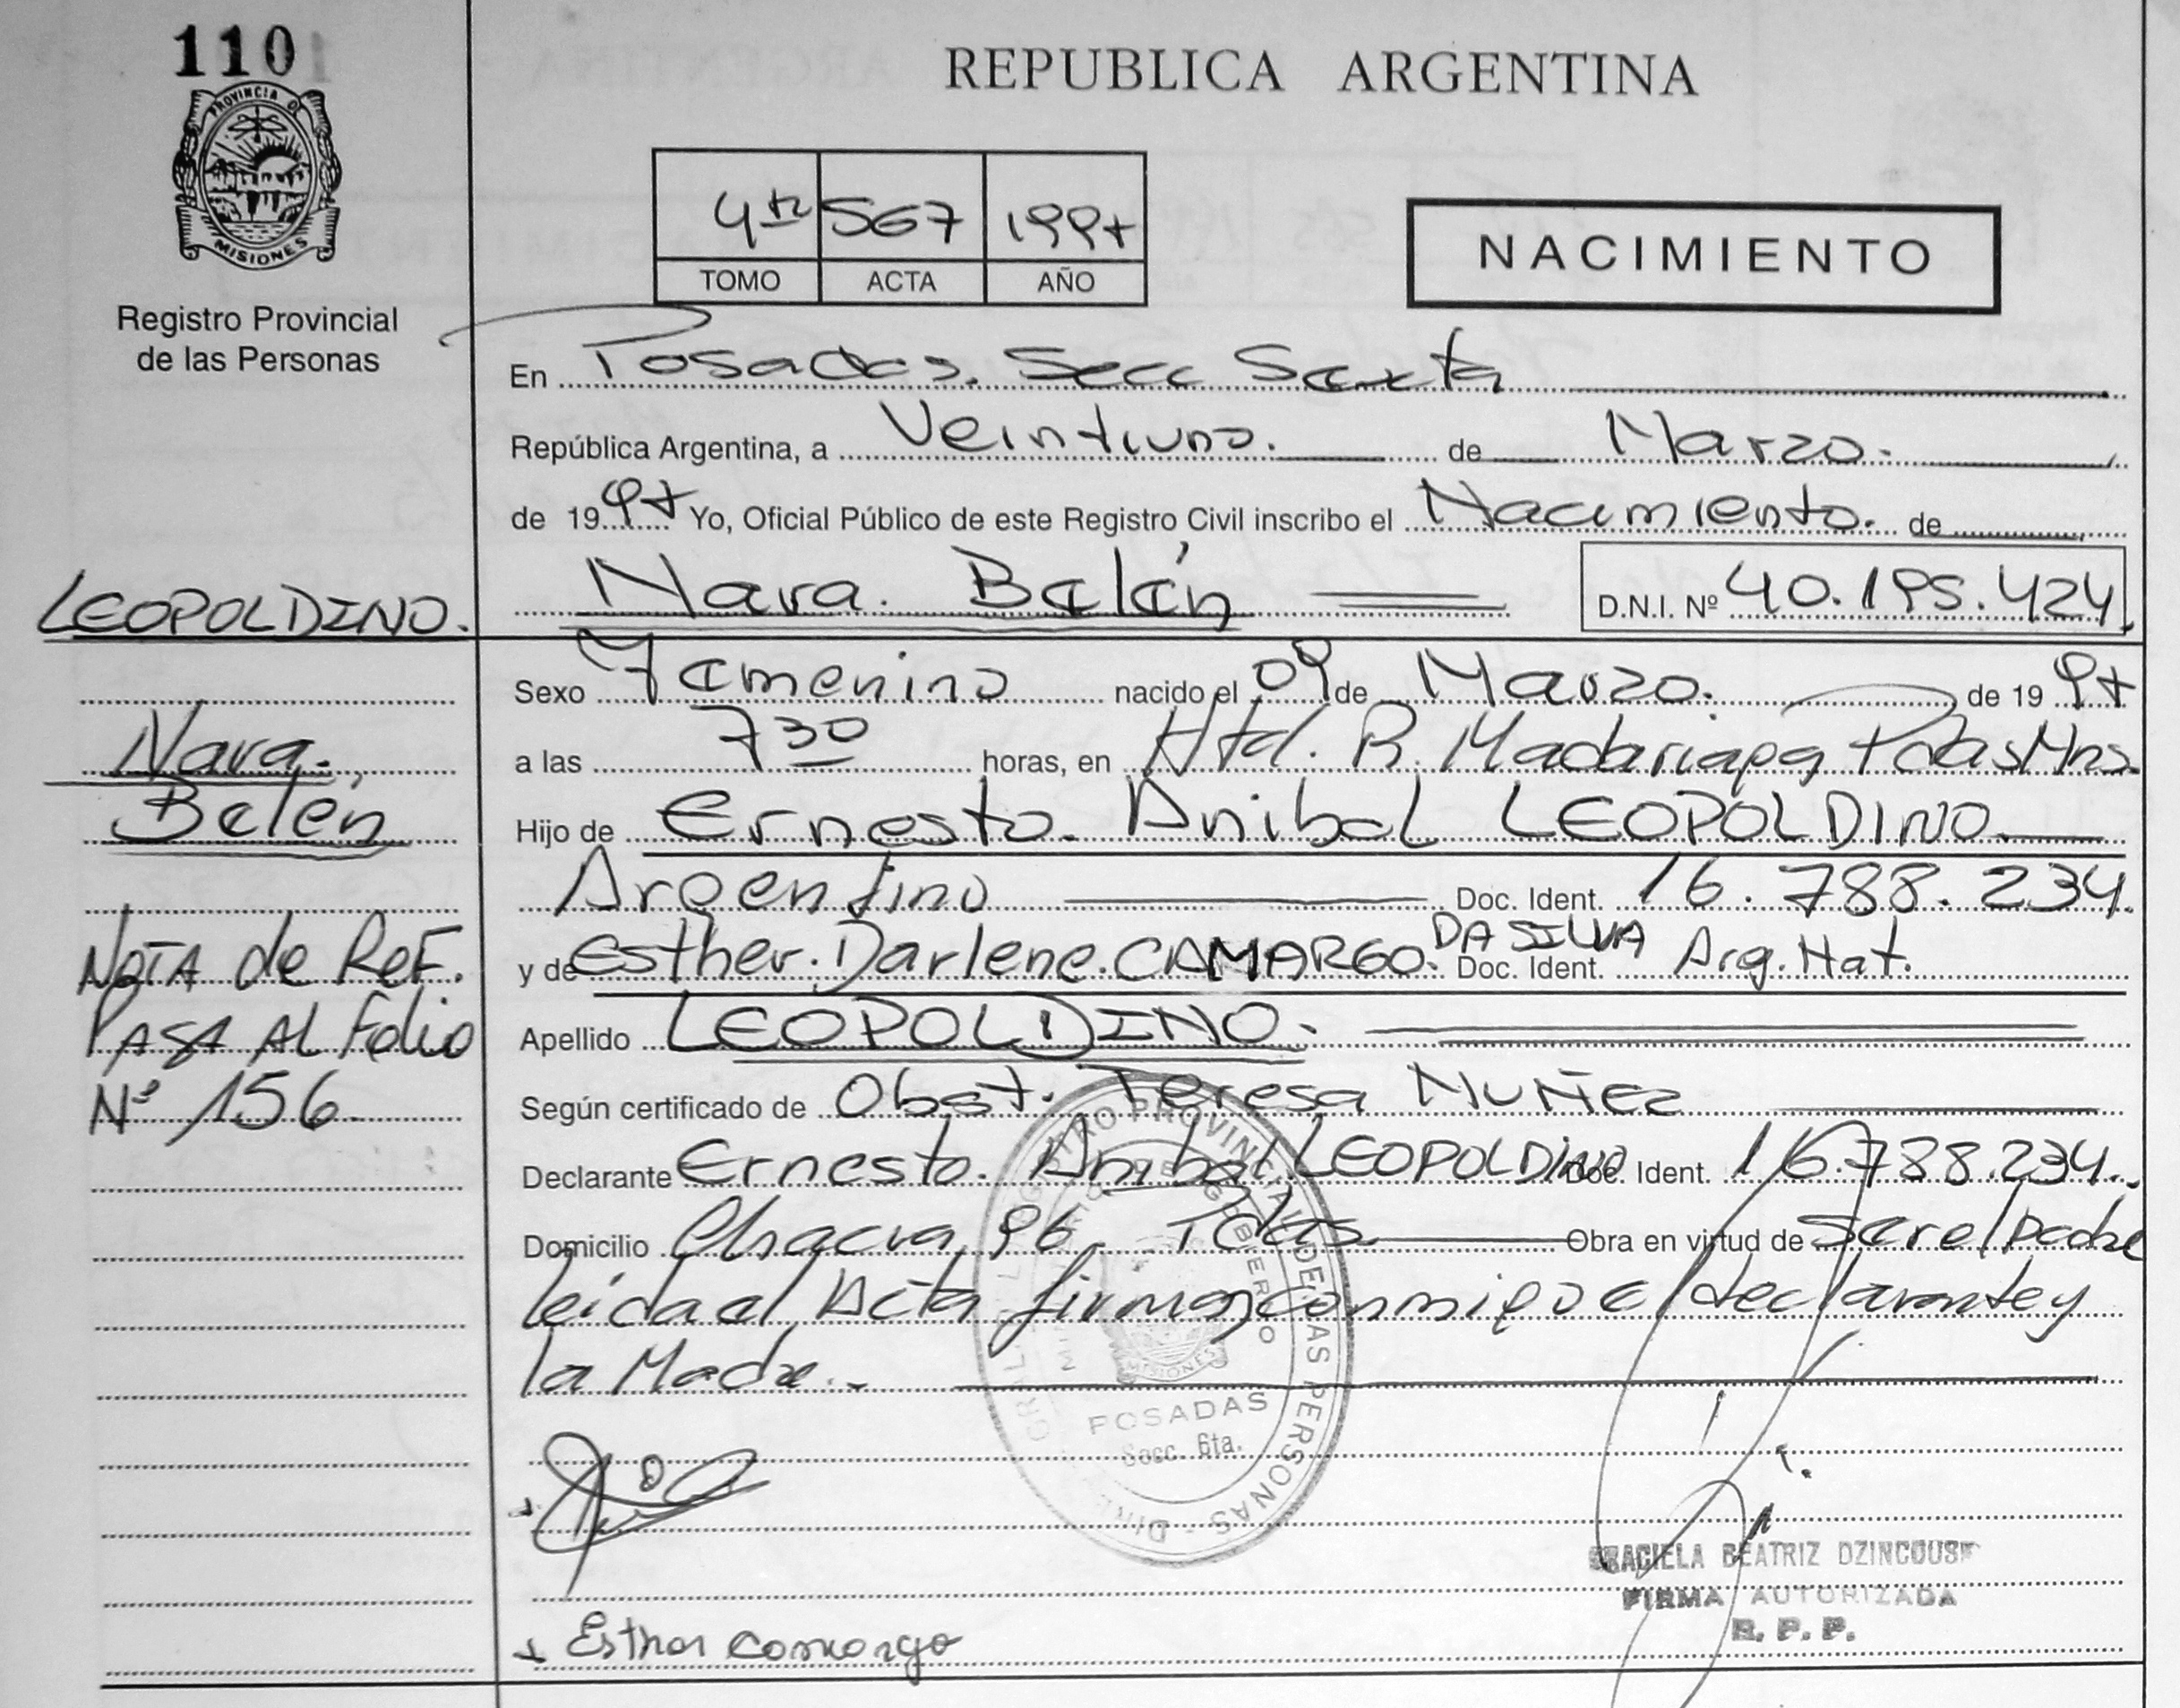 110
REPUBLICA ARGENTINA
PROVINCIA D
MISIONES
Registro Provincial
de las Personas
567 1997
TOMO ACTA AÑO
NACIMIENTO
En Posadas. Secc Sexta
República Argentina, a Veintiuno. de Marzo.
de 1997 Yo, Oficial Público de este Registro Civil inscribo el Nacimiento. de
LEOPOLDINO.
Nara. Belén
D.N.I. Nº 40.195.424
Nara.
Belén
NOTA de REF.
PASA AL Folio
Nº 156
Sexo Femenino nacido el 09 de Marzo. de 1997
a las 7 30 horas, en Htal. R. Madariaga Pdas Mns.
Hijo de Ernesto. Anibal LEOPOLDINO
Argentino Doc. Ident. 16.788.234
y de Esther. Darlene. CAMARGO. DA SILVA Doc. Ident. Arg. Nat.
Apellido LEOPOLDINO.
Según certificado de Obst. Teresa NUÑEZ
Declarante Ernesto. Anibal LEOPOLDINO Doc. Ident. 16.788.234.
Domicilio Chacra 96 Pdas. Obra en virtud de ser el padre
leida el Acta firman conmigo el declarante y
la Madre.
REGISTRO PROVINCIAL DE LAS PERSONAS
MINISTERIO DE GOBIERNO
MISIONES
POSADAS
Secc. 6ta.
GRACIELA BEATRIZ
FIRMA AUTORIZADA
R. P. P.
Esther Camargo